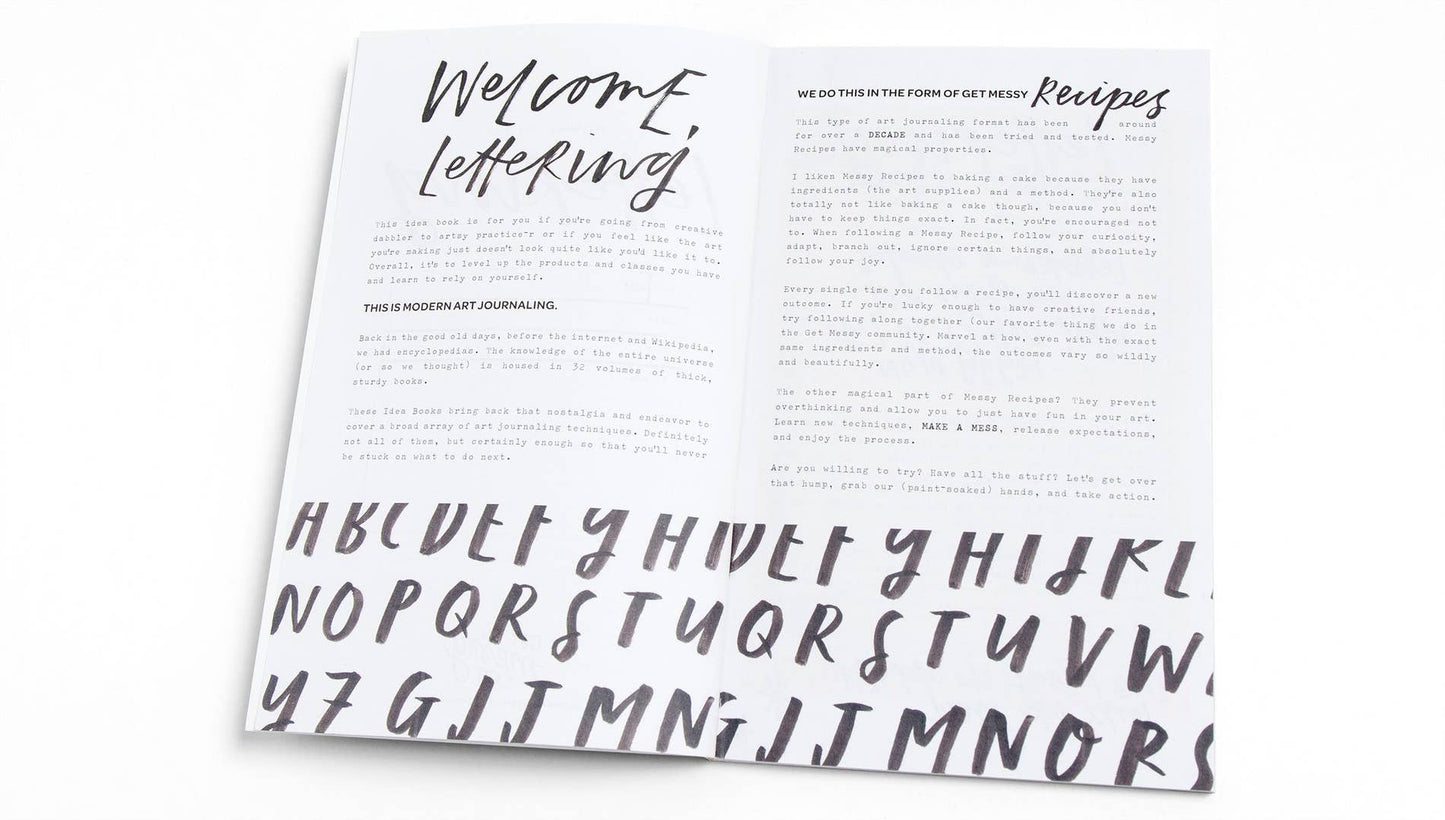 Welcome,
Lettering
This idea book is for you if you're going from creative
dabbler to artsy practice-r or if you feel like the art
you're making just doesn't look quite like you'd like it to.
Overall, it's to level up the products and classes you have
and learn to rely on yourself.
THIS IS MODERN ART JOURNALING.
Back in the good old days, before the internet and Wikipedia,
we had encyclopedias. The knowledge of the entire universe
(or so we thought) is housed in 32 volumes of thick,
sturdy books.
These Idea Books bring back that nostalgia and endeavor to
cover a broad array of art journaling techniques. Definitely
not all of them, but certainly enough so that you'll never
be stuck on what to do next.
A B C D E F Y H
N O P Q R S T U
Y 7 G I J M N
WE DO THIS IN THE FORM OF GET MESSY Recipes
This type of art journaling format has been around
for over a DECADE and has been tried and tested. Messy
Recipes have magical properties.
I liken Messy Recipes to baking a cake because they have
ingredients (the art supplies) and a method. They're also
totally not like baking a cake though, because you don't
have to keep things exact. In fact, you're encouraged not
to. When following a Messy Recipe, follow your curiosity,
adapt, branch out, ignore certain things, and absolutely
follow your joy.
Every single time you follow a recipe, you'll discover a new
outcome. If you're lucky enough to have creative friends,
try following along together (our favorite thing we do in
the Get Messy community. Marvel at how, even with the exact
same ingredients and method, the outcomes vary so wildly
and beautifully.
The other magical part of Messy Recipes? They prevent
overthinking and allow you to just have fun in your art.
Learn new techniques, MAKE A MESS, release expectations,
and enjoy the process.
Are you willing to try? Have all the stuff? Let's get over
that hump, grab our (paint-soaked) hands, and take action.
D E F Y H I J K L
Q R S T U V W
G I J M N O R S